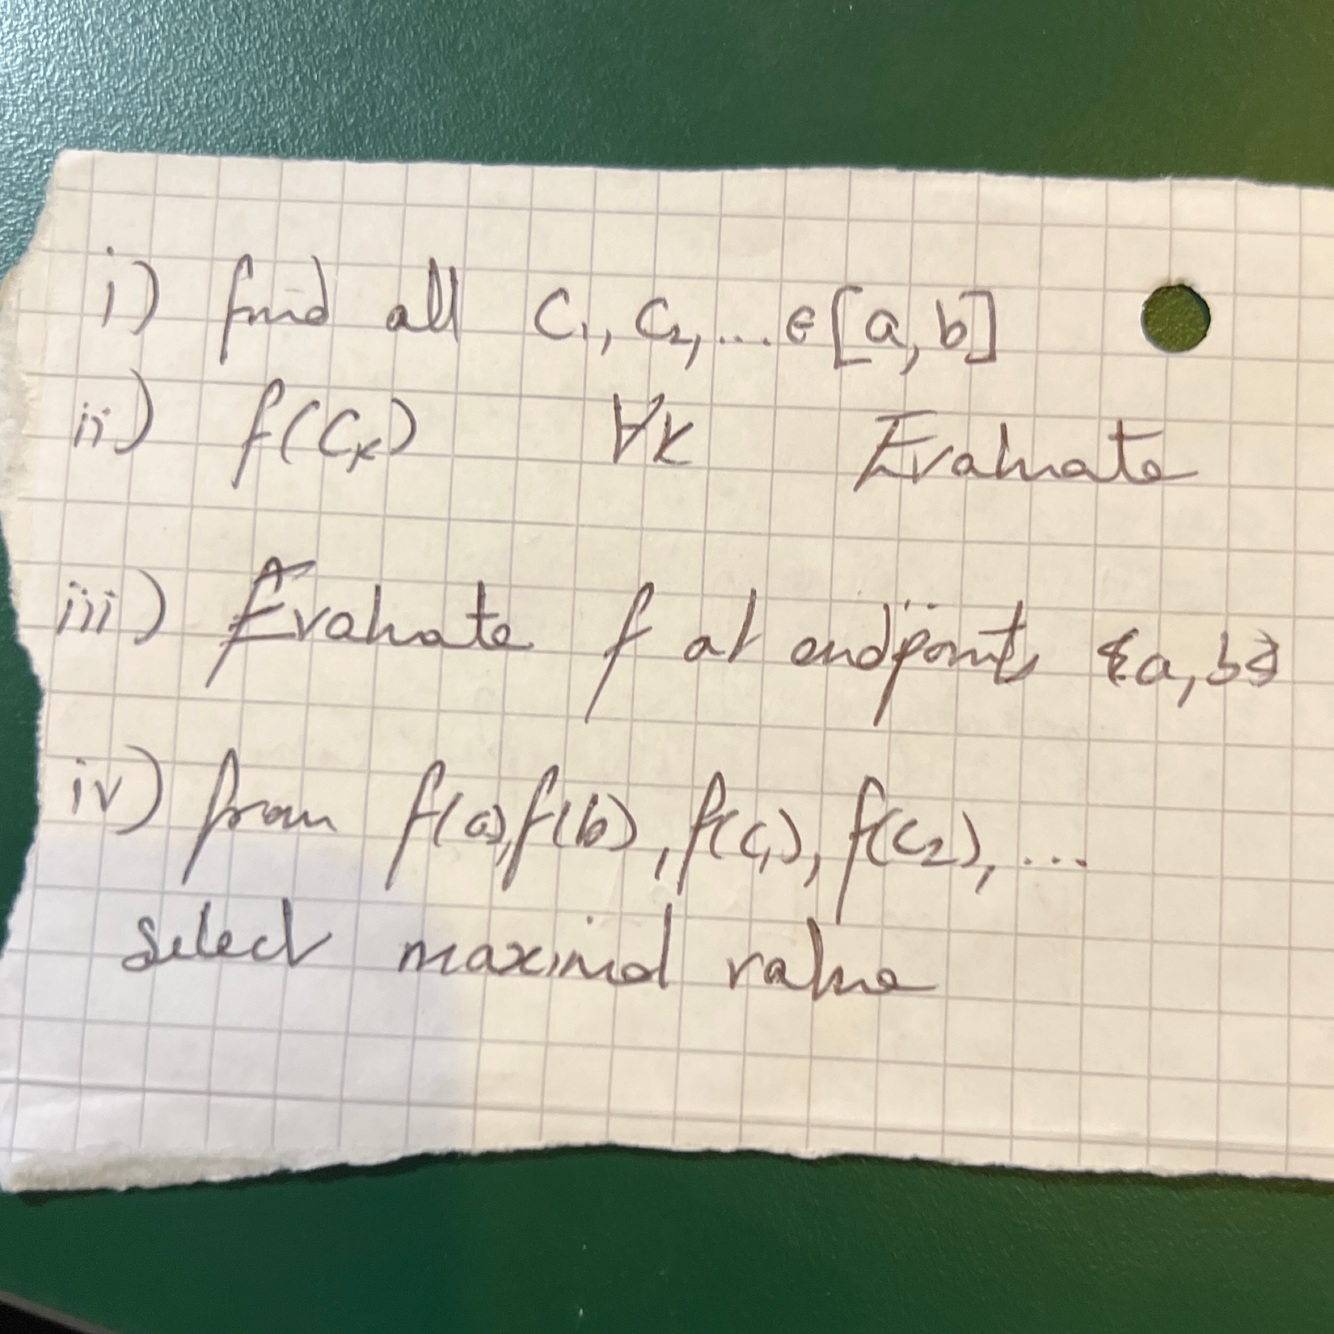 i) find all C₁, C₂, ... ∈ [a, b]
ii) f(Cₖ) ∀k Evaluate
iii) Evaluate f at endpoints {a, b}
iv) from f(a), f(b), f(c₁), f(c₂), ...
select maximal value